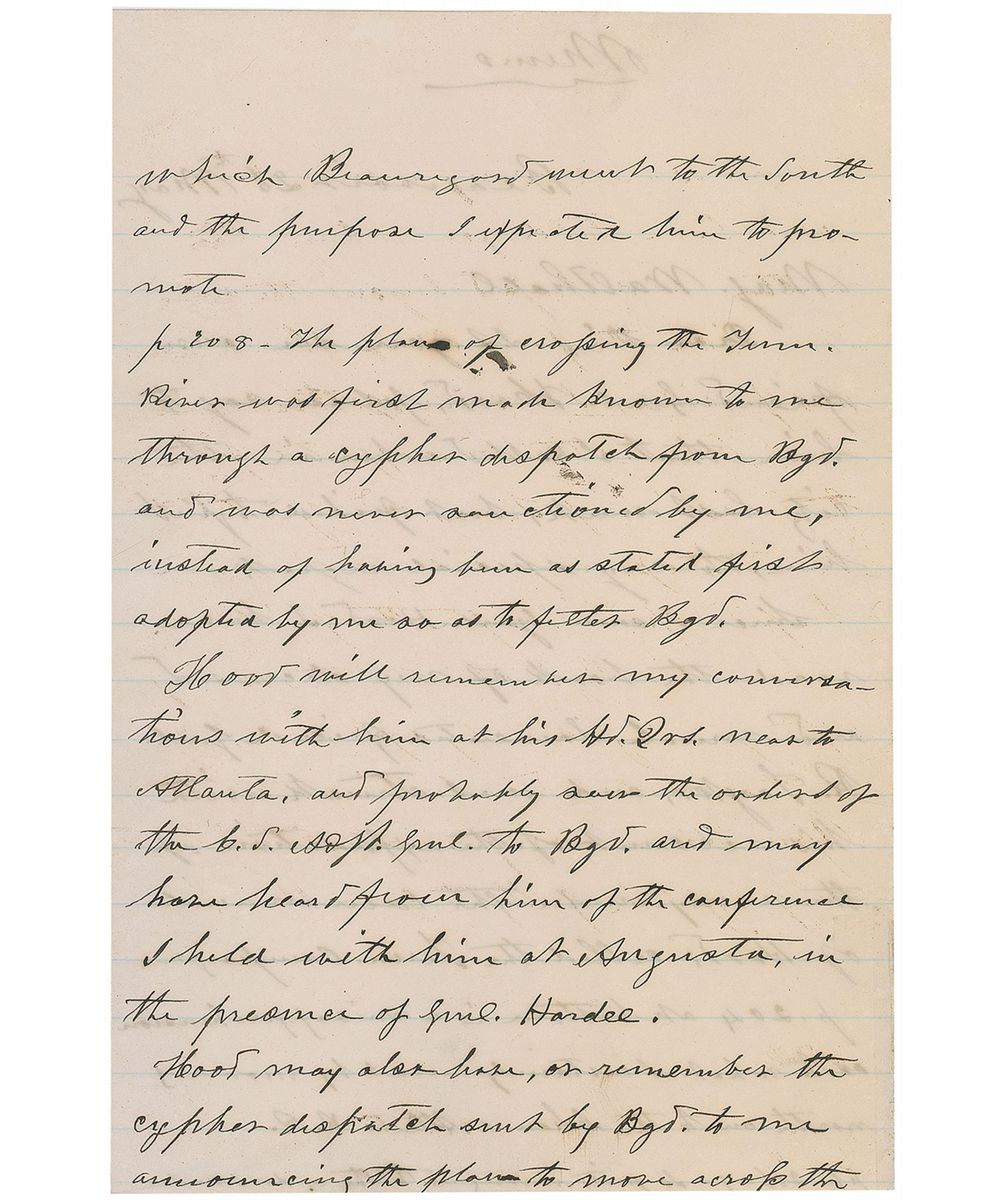 which Beauregard went to the South
and the purpose I expected him to pro-
mote
p 208 - The plan of crossing the Tenn.
River was first made known to me
through a cypher dispatch from Bgd.
and was never sanctioned by me,
instead of having been as stated first
adopted by me so as to fetter Bgd.
Hood will remember my conversa-
tions with him at his Hd. Qrs. near to
Atlanta, and probably saw the orders of
the C. S. Adjt. Genl. to Bgd. and may
have heard from him of the conference
I held with him at Augusta, in
the presence of Genl. Hardee.
Hood may also have, or remember the
cypher dispatch sent by Bgd. to me
announcing the plan to move across the